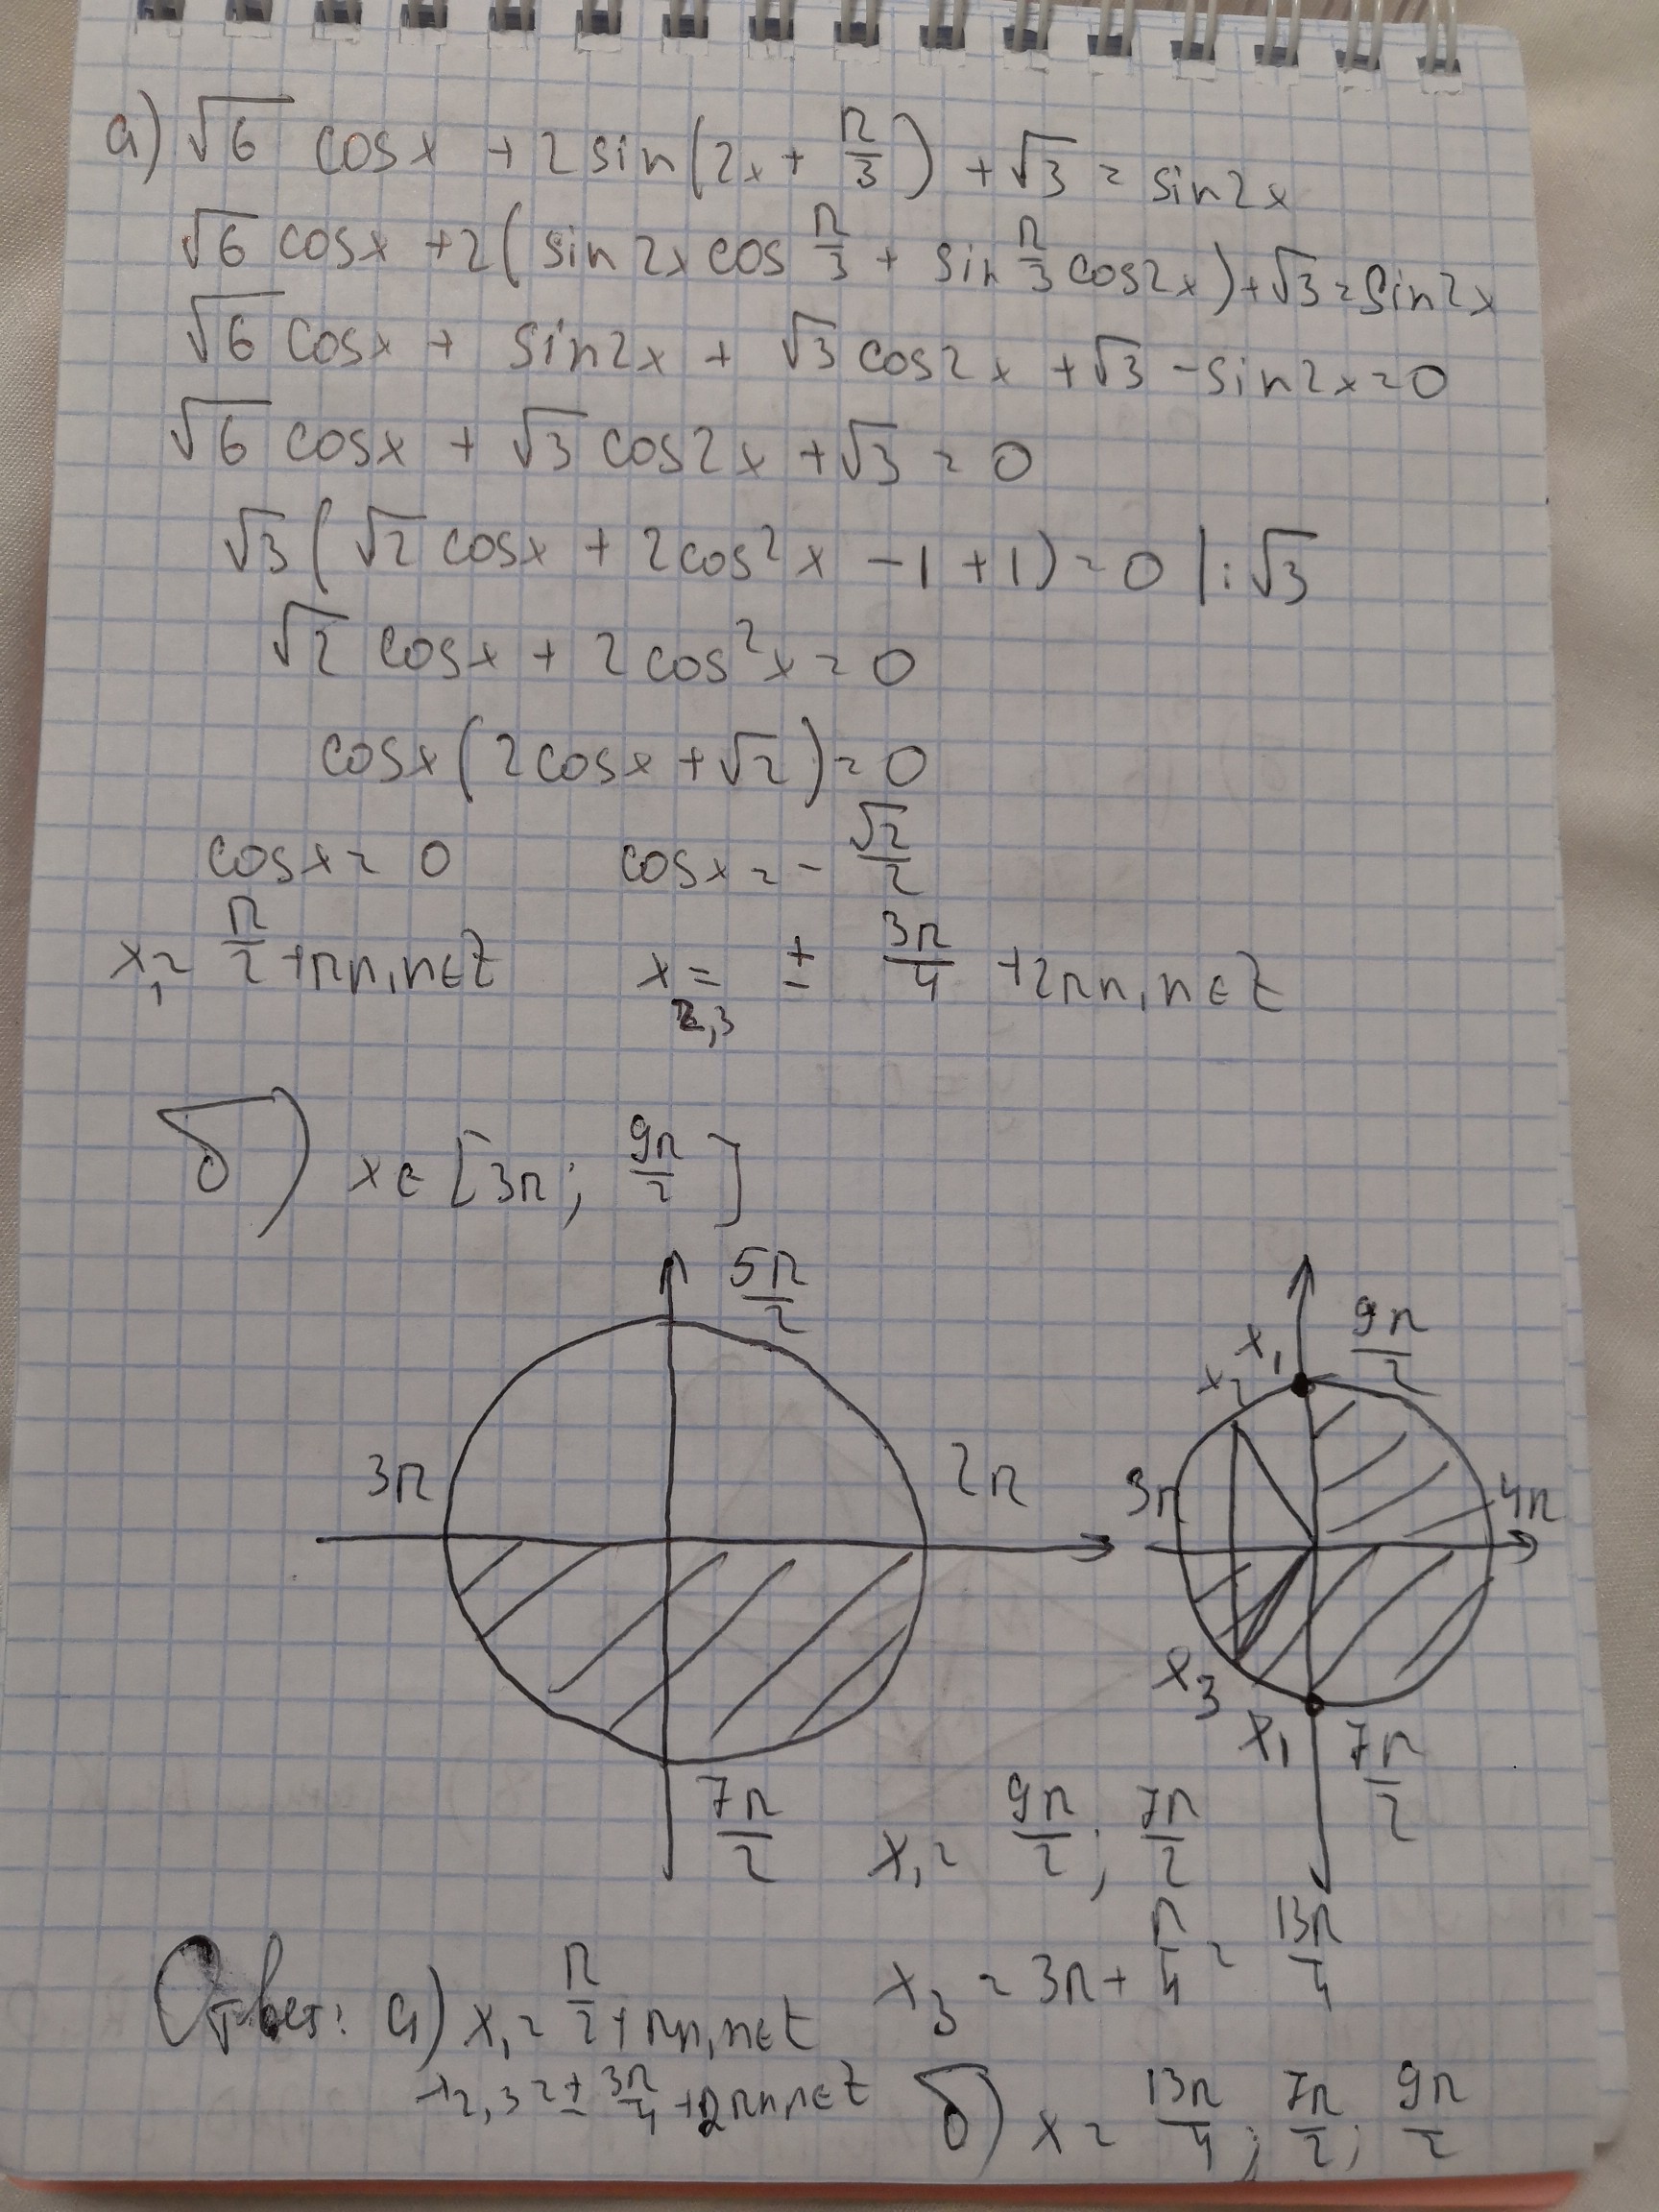 а) √6 cosx + 2sin(2x + π/3) + √3 = sin2x
√6 cosx + 2(sin2x cos π/3 + sin π/3 cos2x) + √3 = sin2x
√6 cosx + sin2x + √3 cos2x + √3 - sin2x = 0
√6 cosx + √3 cos2x + √3 = 0
√3(√2 cosx + 2cos²x - 1 + 1) = 0 |:√3
√2 cosx + 2cos²x = 0
cosx(2cosx + √2) = 0
cosx = 0 cosx = - √2/2
x₁ = π/2 + πn, n∈Z x₂,₃ = ± 3π/4 + 2πn, n∈Z
б) x∈[3π; 9π/2]
5π/2
3π
2π
7π/2
x₁ 9π/2
x₂
3π
4π
x₃
x₁ 7π/2
x₁ = 9π/2; 7π/2
x₃ = 3π + π/4 = 13π/4
Ответ: а) x₁ = π/2 + πn, n∈Z
x₂,₃ = ± 3π/4 + 2πn, n∈Z
б) x = 13π/4; 7π/2; 9π/2